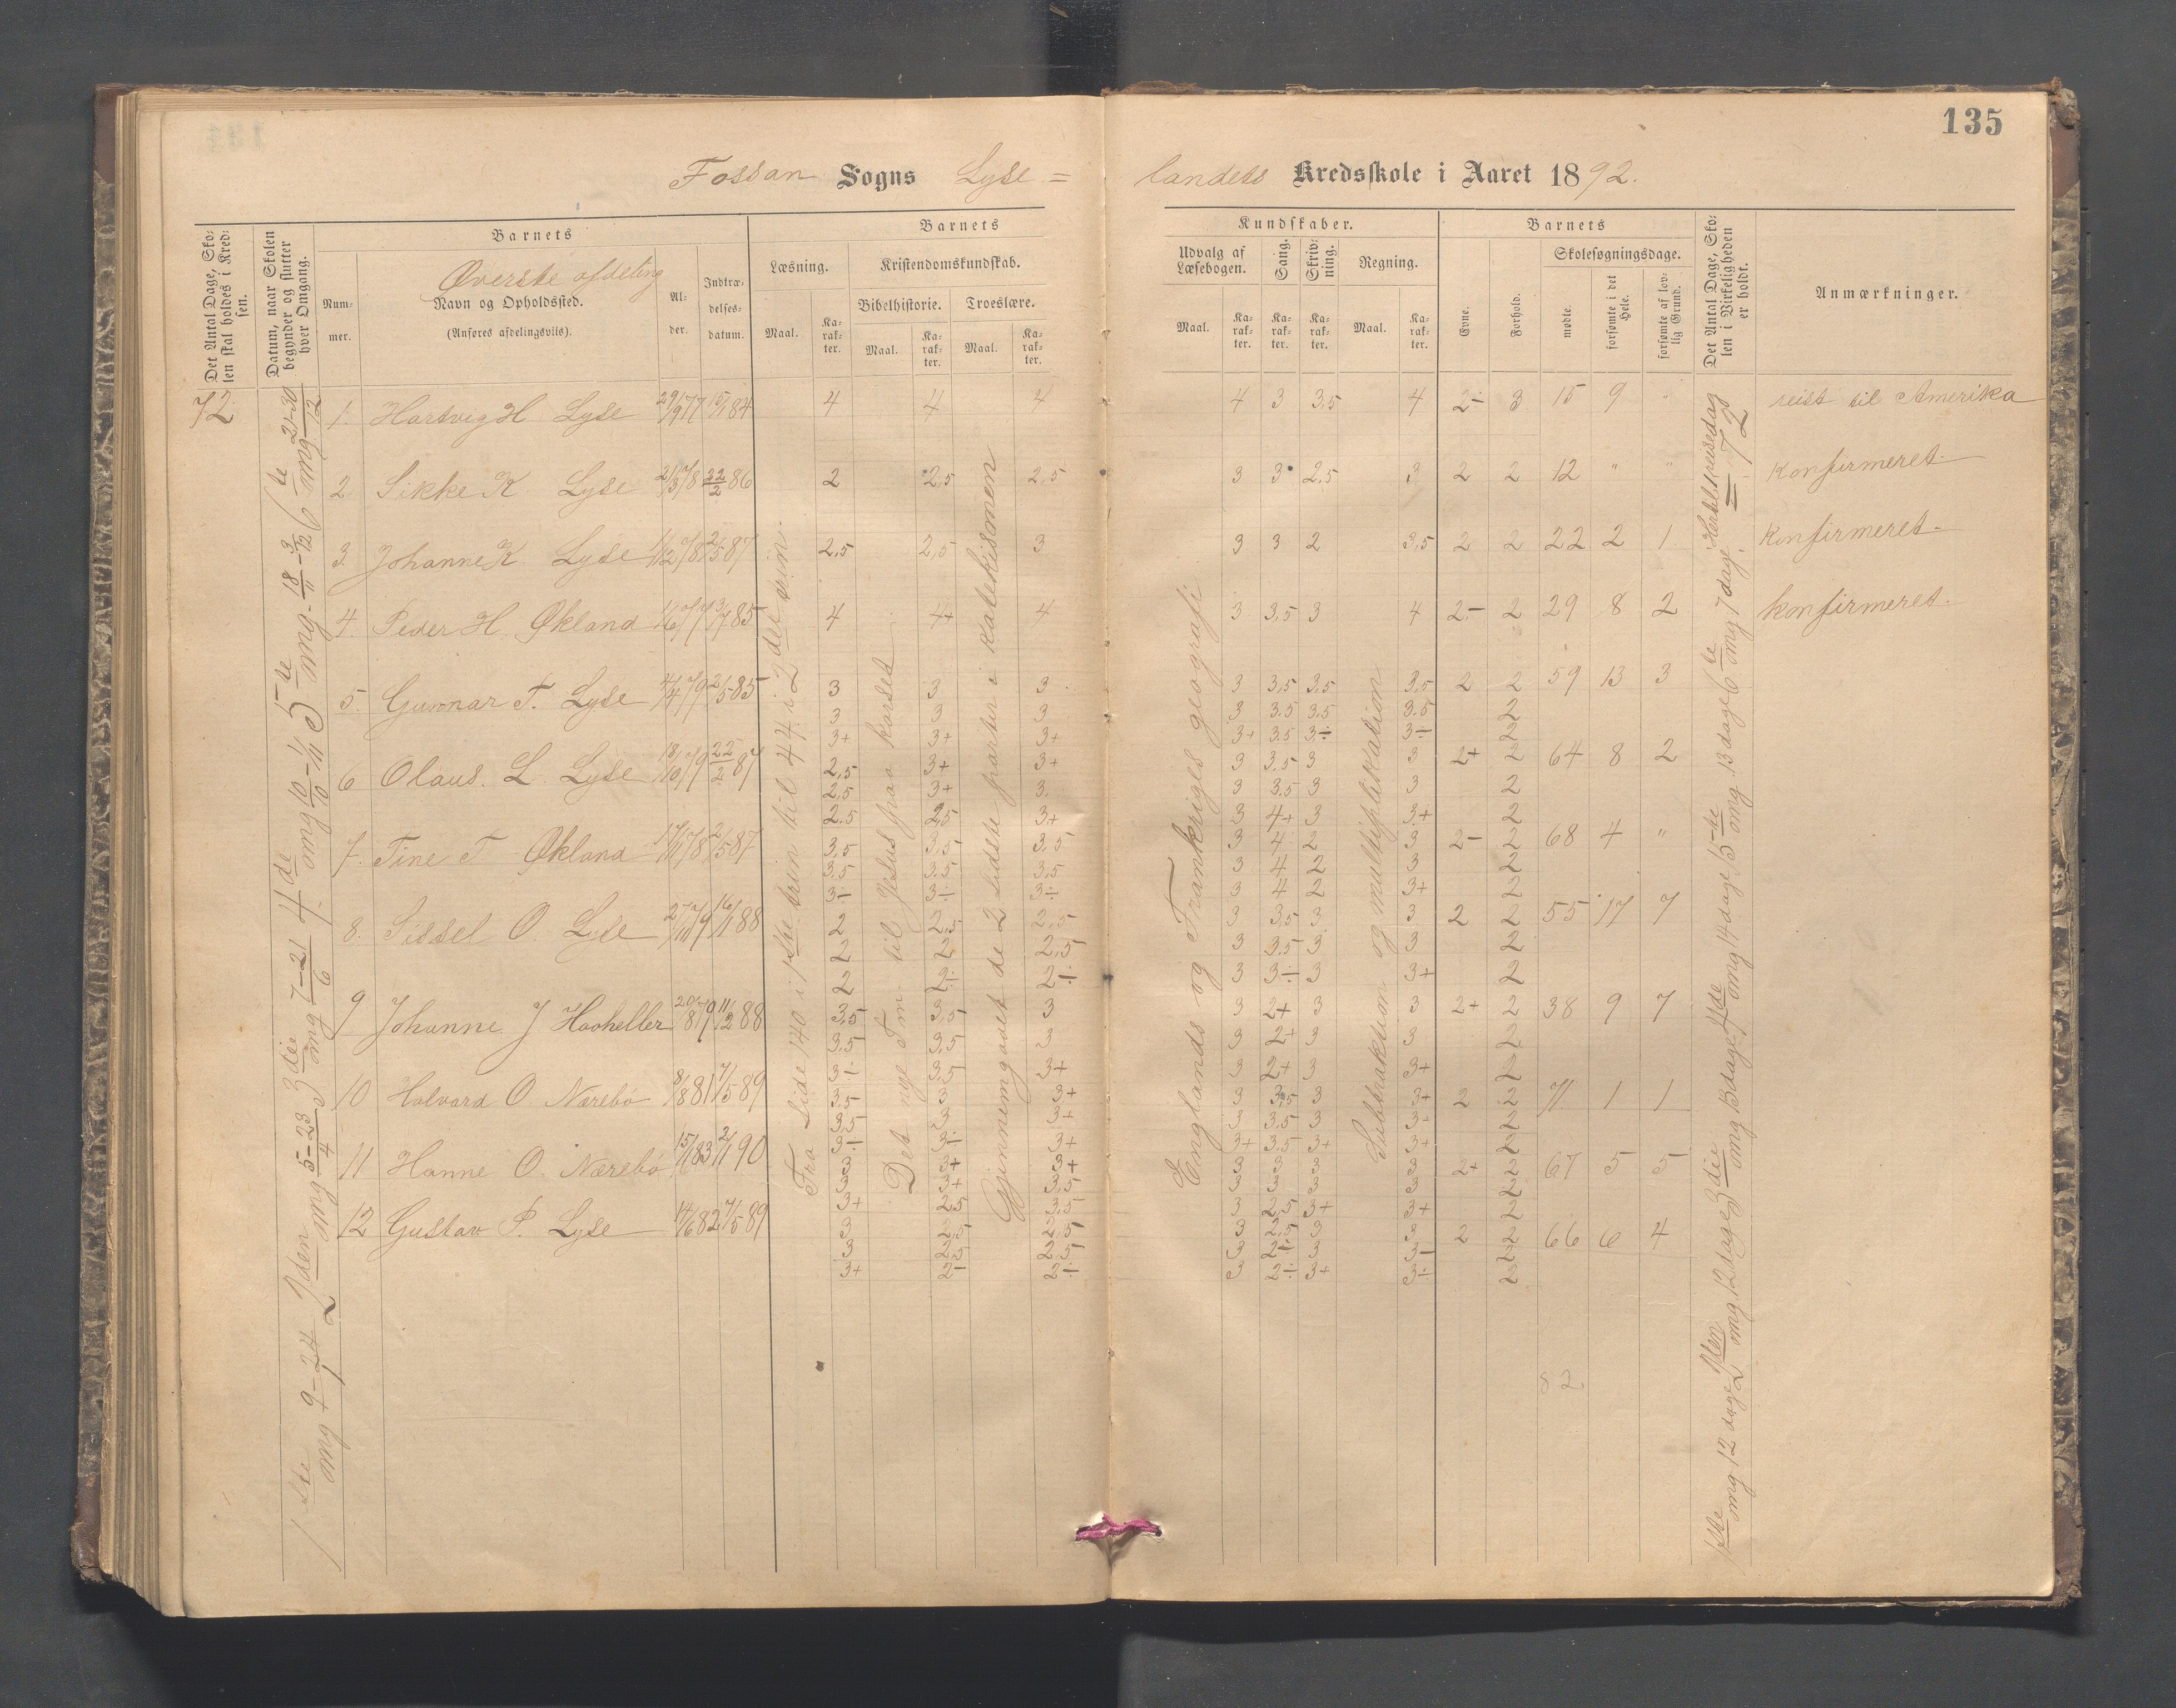 135
Fossan Sogns Lyse=
landets Kredsskole i Aaret 1892.
Det Antal Dage, Skolen skal holdes i Kredsen.
Datum, naar Skolen begynder og slutter hver Omgang.
Barnets
Num-
mer.
Øverste afdeling
Navn og Opholdssted.
(Anføres afdelingsviis).
Al-
der.
Indtræ-
delses-
datum.
Barnets
Læsning.
Kristendomskundskab.
Bibelhistorie. Troeslære.
Maal. Ka-
rak-
ter.
Maal. Ka-
rak-
ter.
Maal. Ka-
rak-
ter.
Kundskaber.
Udvalg af
Læsebogen.
Sang.
Skriv-
ning.
Regning.
Maal. Ka-
rak-
ter.
Ka-
rak-
ter.
Ka-
rak-
ter.
Maal. Ka-
rak-
ter.
Barnets
Evne.
Forhold.
Skolesøgningsdage.
mødte.
forsømte i det
Hele.
forsømte af lov-
lig Grund.
Det Antal Dage, Sko-
len i Virkeligheden
er holdt.
Anmærkninger.
72
1. Hartvig H Lyse 29/9 77 15/1 84 4 4 4 4 3 3,5 4 2÷ 3 15 9 " reist til Amerika
2 Sikke K Lyse 22/2 86 2 2,5 2,5 3 3 2,5 3 2 2 12 " " Konfirmeret
3. Johanne K. Lyse 2/5 87 2,5 2,5 3 3 3 2 3,5 2 2 22 2 1 Konfirmeret
4. Peder H. Økland 85 4 4+ 4 3 3,5 3 4 2- 2 29 8 2 konfirmeret.
5. Gunnar T. Lyse 4/4 79 2/5 85 3 3 3 3 3,5 3,5 3,5 2 2 59 13 3
3 3 3 3 3.5 3.5 3.5 2
3+ 3+ 3+ 3+ 3.5 3÷ 3÷ 2
6 Olaus. L Lyse 18/10 79 22/2 87 2,5 3+ 3+ 3 3,5 3 3 2+ 2 64 8 2
2.5 3+ 3. 3 3.5 3 3 2
2.5 2,5 3+ 3 4+ 3 3+ 2
7. Tine T Økland 2/5 87 3,5 3,5 3,5 3 4 2 3 2- 2 68 4 "
3.5 3.5 3.5 3 4 2 3 2
3÷ 3÷ 3÷ 3 4 2 3+ 2
8. Sissel O. Lyse 27/11 79 16/1 88 2 2,5 2,5 3 3,5 3 3 2 2 55 17 7
2 2 2,5 3 3.5 3 3 2
2 2÷ 2÷ 3 3÷ 3 3+ 2
9 Johanne J Haaheller 20/8 79 11/2 88 3,5 3,5 3 3 2+ 3 3 2+ 2 38 9 7
3.5 3.5 3 3 2+ 3 3 2
3÷ 3.5 3+ 3 2+ 3 3+ 2
10 Halvard O. Nærebø 8/8 81 7/5 89 3.5 3 3+ 3 3,5 3 3+ 2 2 71 1 1
3.5 3 3+ 3 3.5 3 3÷ 2
3÷ 3÷ 3+ 3+ 3.5 3+ 3+ 2
11 Hanne O. Nærebø 15/1 83 2/1 90 3 3+ 3+ 3 3 3 3 2+ 2 67 5 5
3 3+ 3.5 3 3 3 3 2
3+ 2.5 3.5 3 2.5 3+ 3+ 2
12 Gustav P. Lyse 14/6 82 7/5 89 3 2,5 2,5 3 2,5 3 3 2 2 66 6 4
3 2.5 2.5 3 2÷ 3 3÷ 2
3+ 2÷ 2÷ 3 2÷ 3+ 3÷ 2
1ste omg 9-24/1 2den omg 5-23/4 3die omg 7-21/6 4de omg 10/10-1/11 5te omg 18/11-3/12 6te omg 21-30/12
Fra Side 140 i 1ste trin til 44 i 2det trin.
Det nye Tm. til Jesus paa korset
Gjennemgaaet de 2 sidste parter i katekismen
Englands og Frankriges geografi
Subtraktion og multiplikation
1ste omg 12 dage 2den omg 12 dage 3die omg 13 dage 4de omg 14 dage 5te omg 13 dage 6te omg 7 dage. = 72